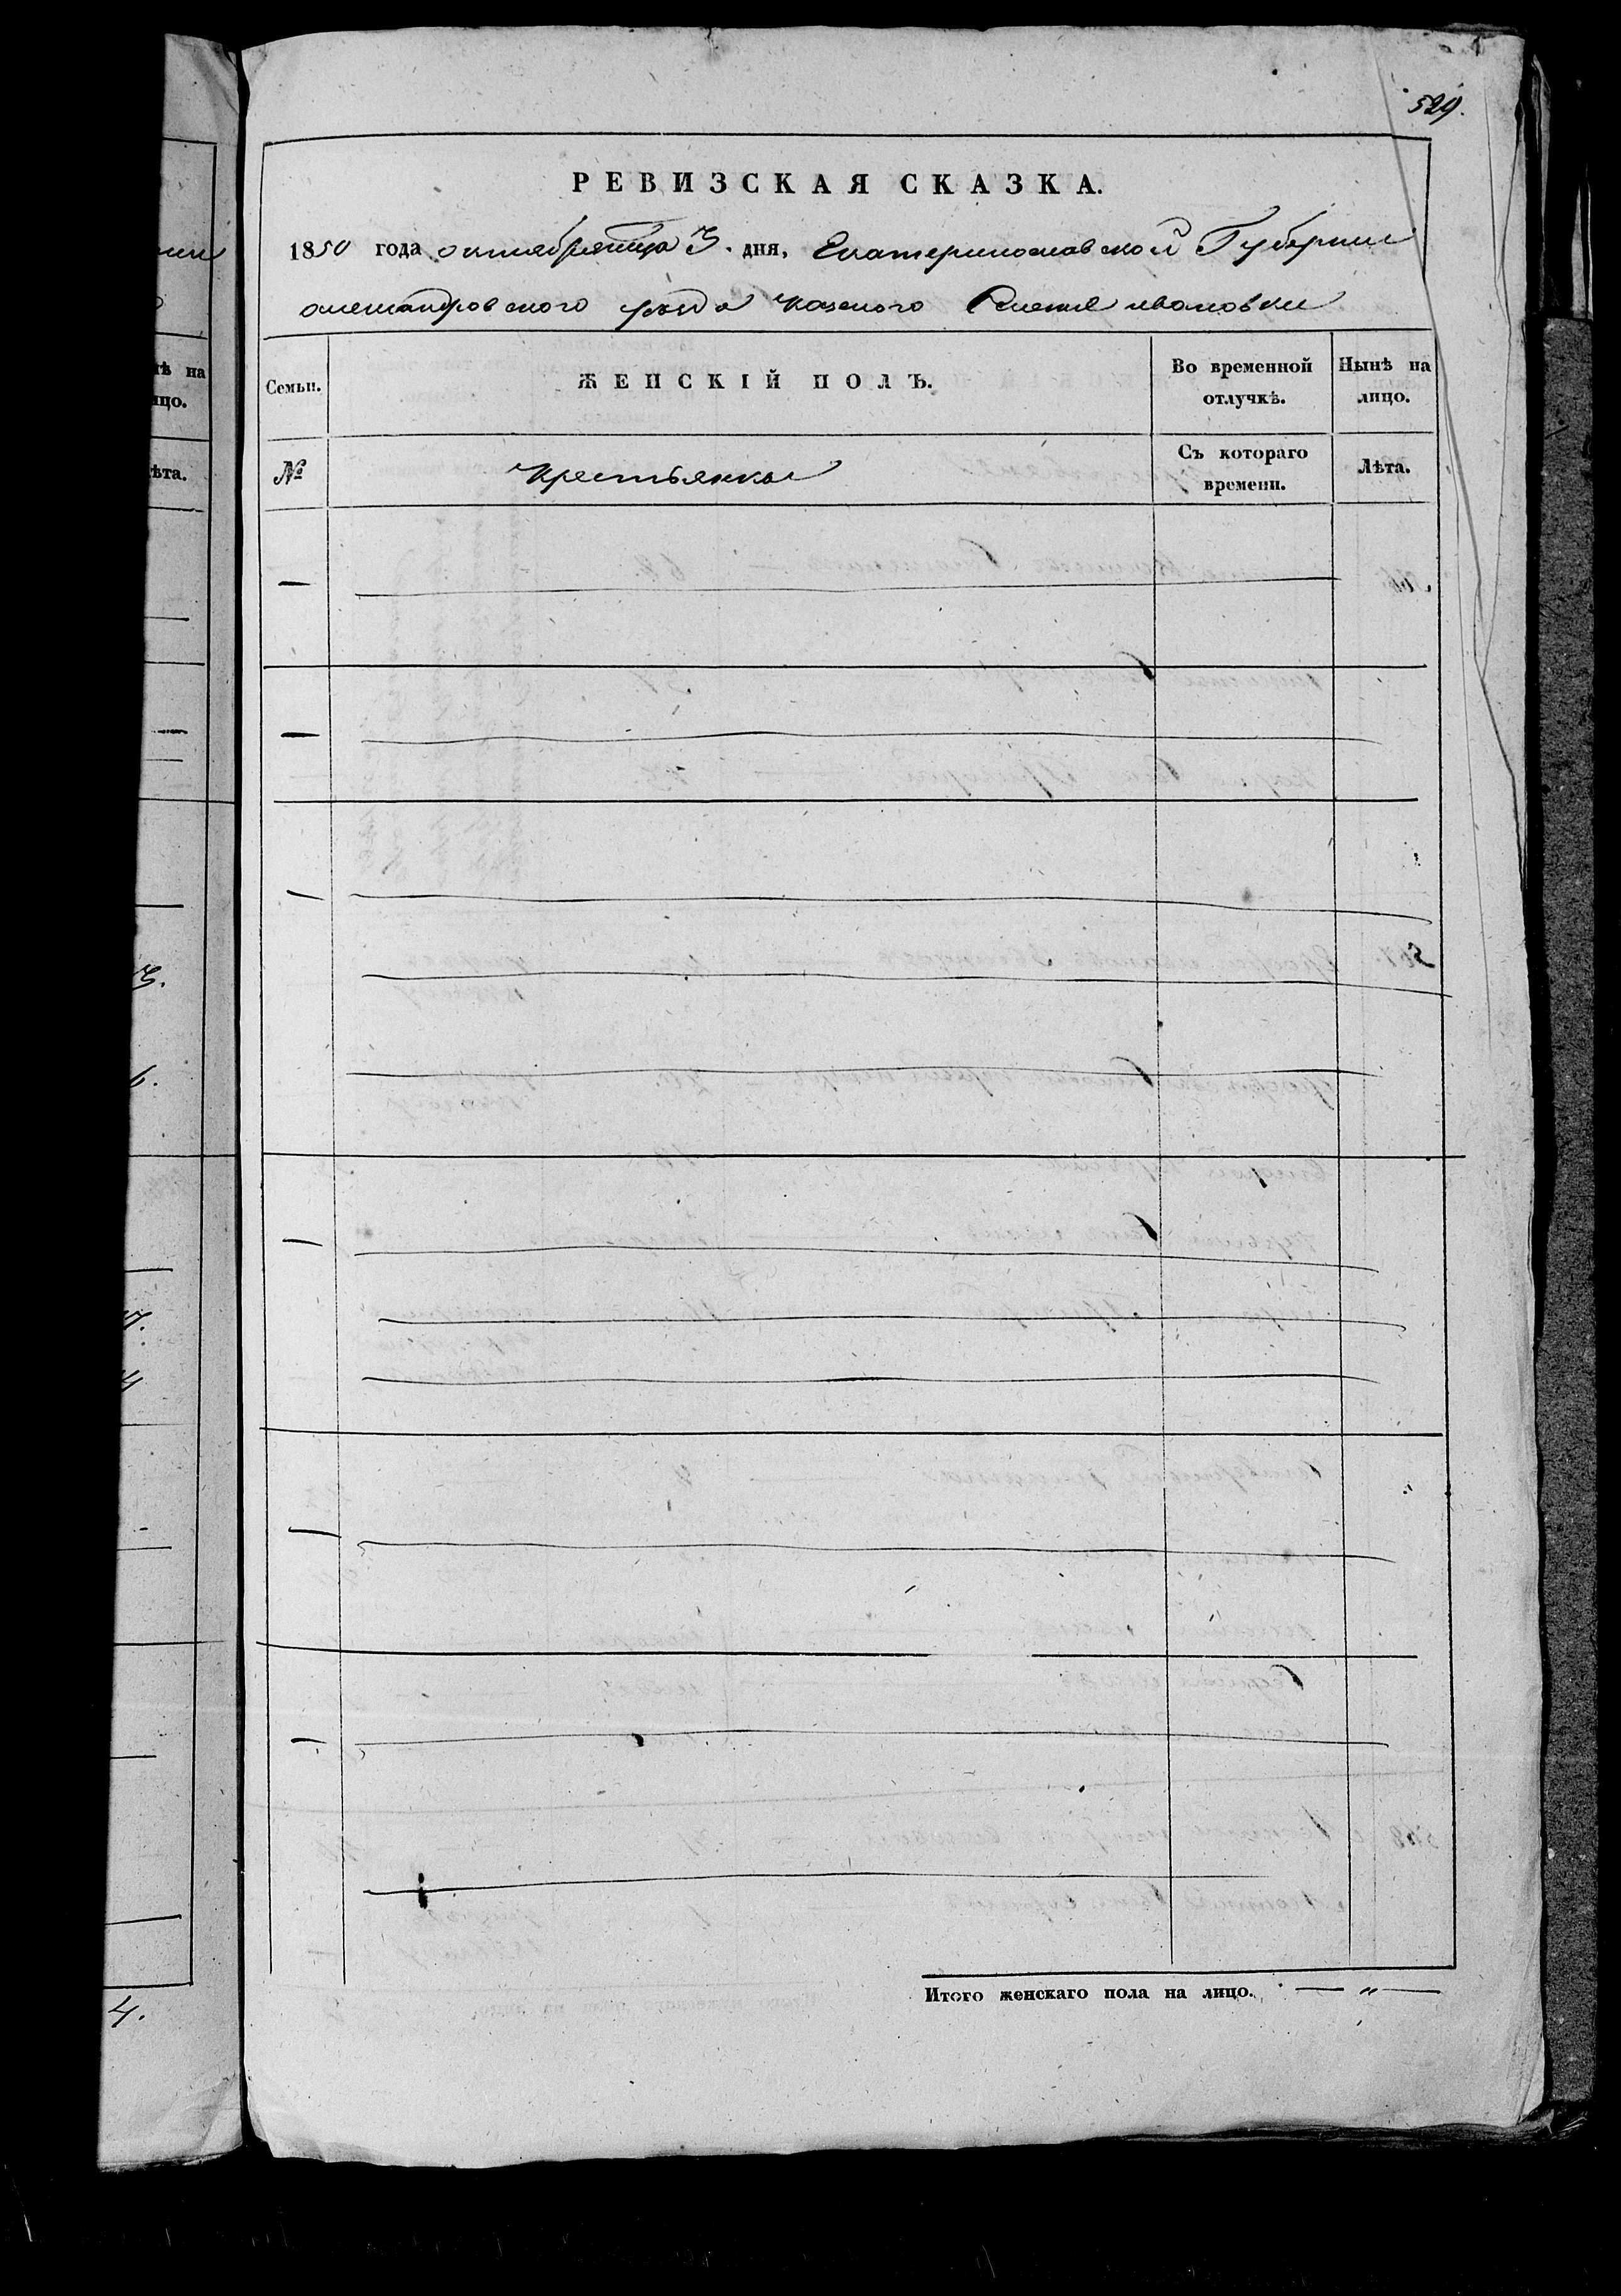 529.
РЕВИЗСКАЯ СКАЗКА.
1850 года октября мца 3. дня, Екатеринославской Губернии
александровского уезда казеного Селения ивановки
Семьи. ЖЕНСКІЙ ПОЛЪ. Во временной отлучкѣ. Нынѣ на лицо.
№ крестьянки Съ котораго времени. Лѣта.
Итого женскаго пола на лицо. — „ —